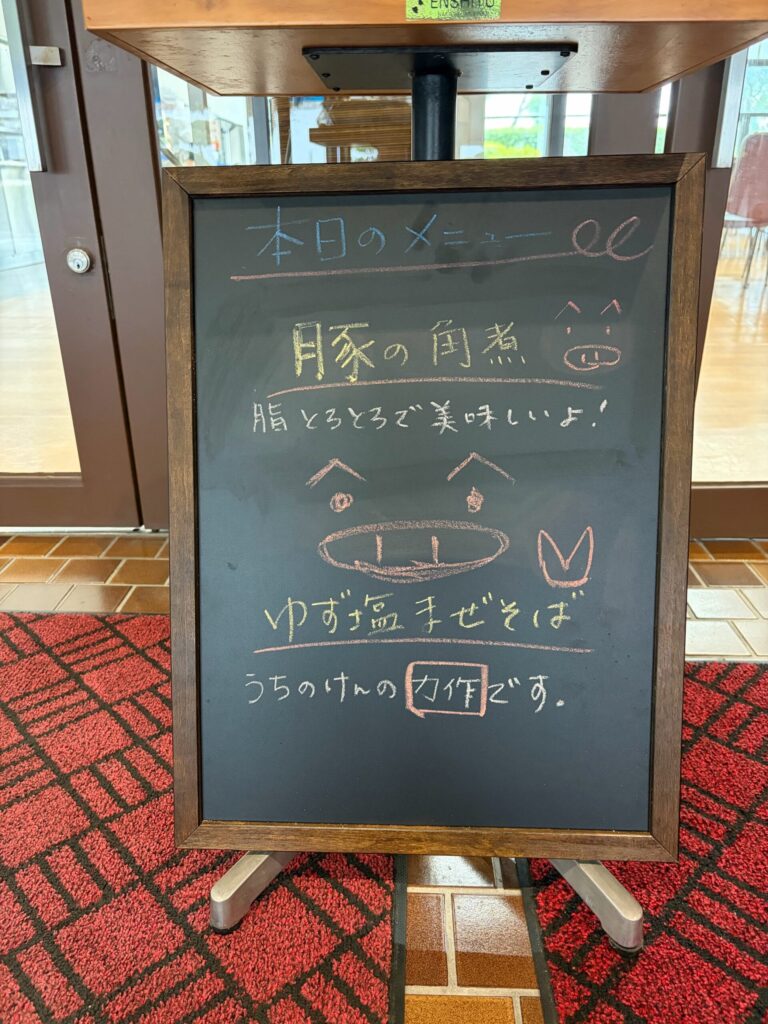 ENSHIDO
本日のメニュー
豚の角煮
脂とろとろで美味しいよ!
ゆず塩まぜそば
うちのけんの力作です.